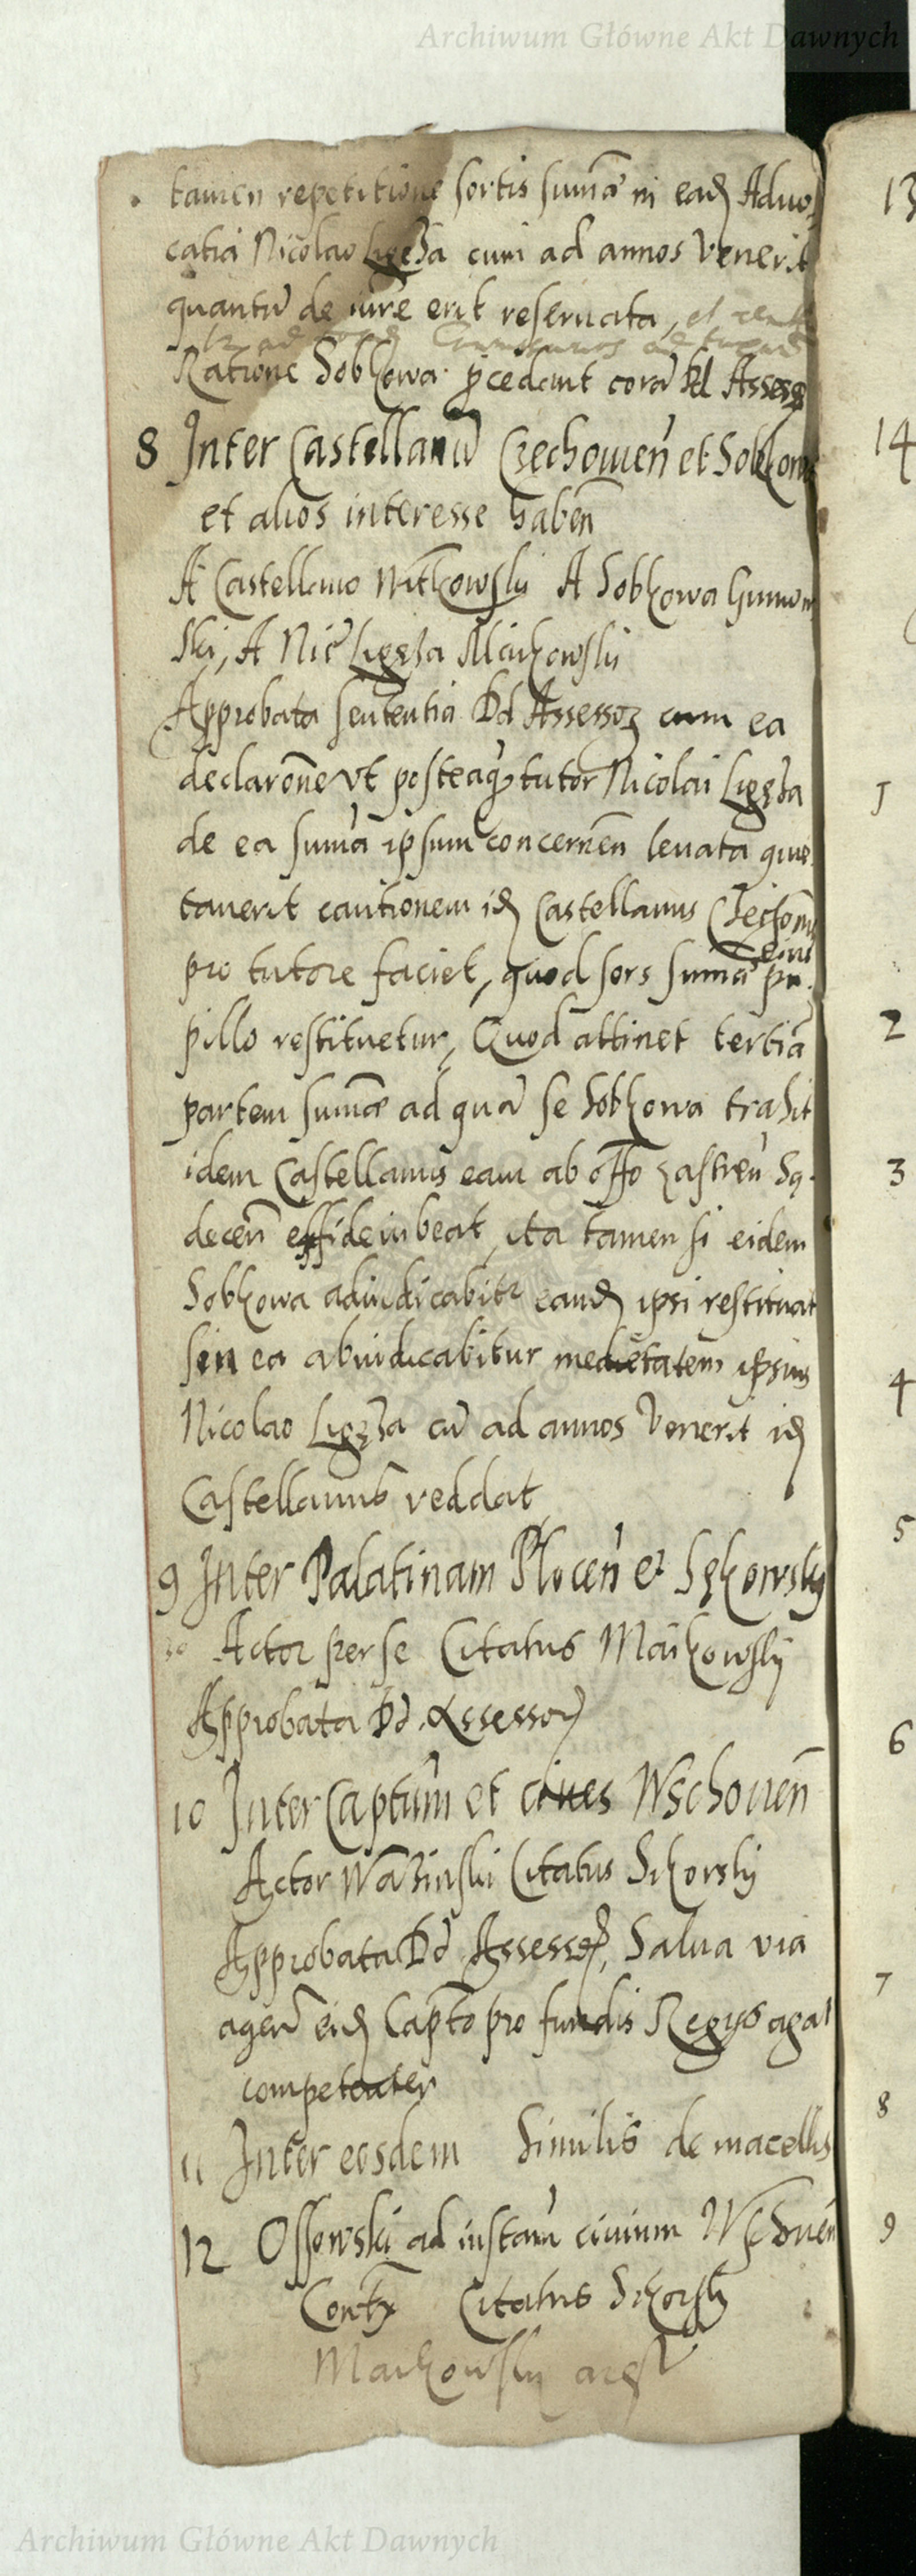 Archiwum Główne Akt Dawnych
tamen repetitione sortis sumae in ead Aduo
catia Nicolao Ligęza cum ad annos Venerit
quantu de iure erit reseruata, et
Commissarios
Ratione Sobkowa pcedant cora Dd Assess
8 Inter Castellanu Czechouien et Sobkow
et alios interesse haben
A Castellano Witkowskij A Sobkowa Humow
ski, A Nic Ligęza Maikowskij
Approbata sententia Dd Assessor cum ea
declarone vt posteaq tutor Nicolai Ligęza
de ea suma ipsum concernen leuata quie
tauerit cautionem id Castellanus Czechou
eius
pro tutore faciet, quod sors suma pu
pillo restituetur, Quod attinet tertia
partem sumae ad qua se Sobkowa trahit
idem Castellanus eam ab offo castren Są
decen iubeat, ita tamen si eidem
Sobkowa adiudicabitr eand ipsi restituat
sin ea abiudicabitur medietatem ipsius
Nicolao Ligęza cu ad annos Venerit id
Castellanus reddat
9 Inter Palatinam Plocen et Sękowsky
Actor per se Citatus Maikowskij
Approbata Dd Assessor
10 Inter Captum et ciues Wschouen
Actor Wazinski Citatus Sikorskij
Approbata Dd Assessor, Salua via
agen eid Capto pro fundis Regijs agat
competenter
11 Inter eosdem Similis de macellis
12 Ossowski ad instan ciuium Wschuen
Contr Citatus Sikorsky
Maikowskij
13
14
J
2
3
4
5
6
7
8
9
Archiwum Główne Akt Dawnych